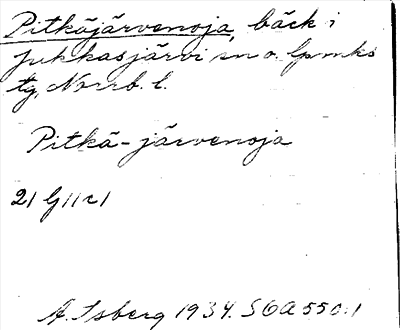 Pitkäjärvenoja, bäck i
Jukkasjärvi sn o. lpmks
tg, Norrb. l.
Pitkä-järvenoja
21 G
A. Isberg 1934. SOA 550:1